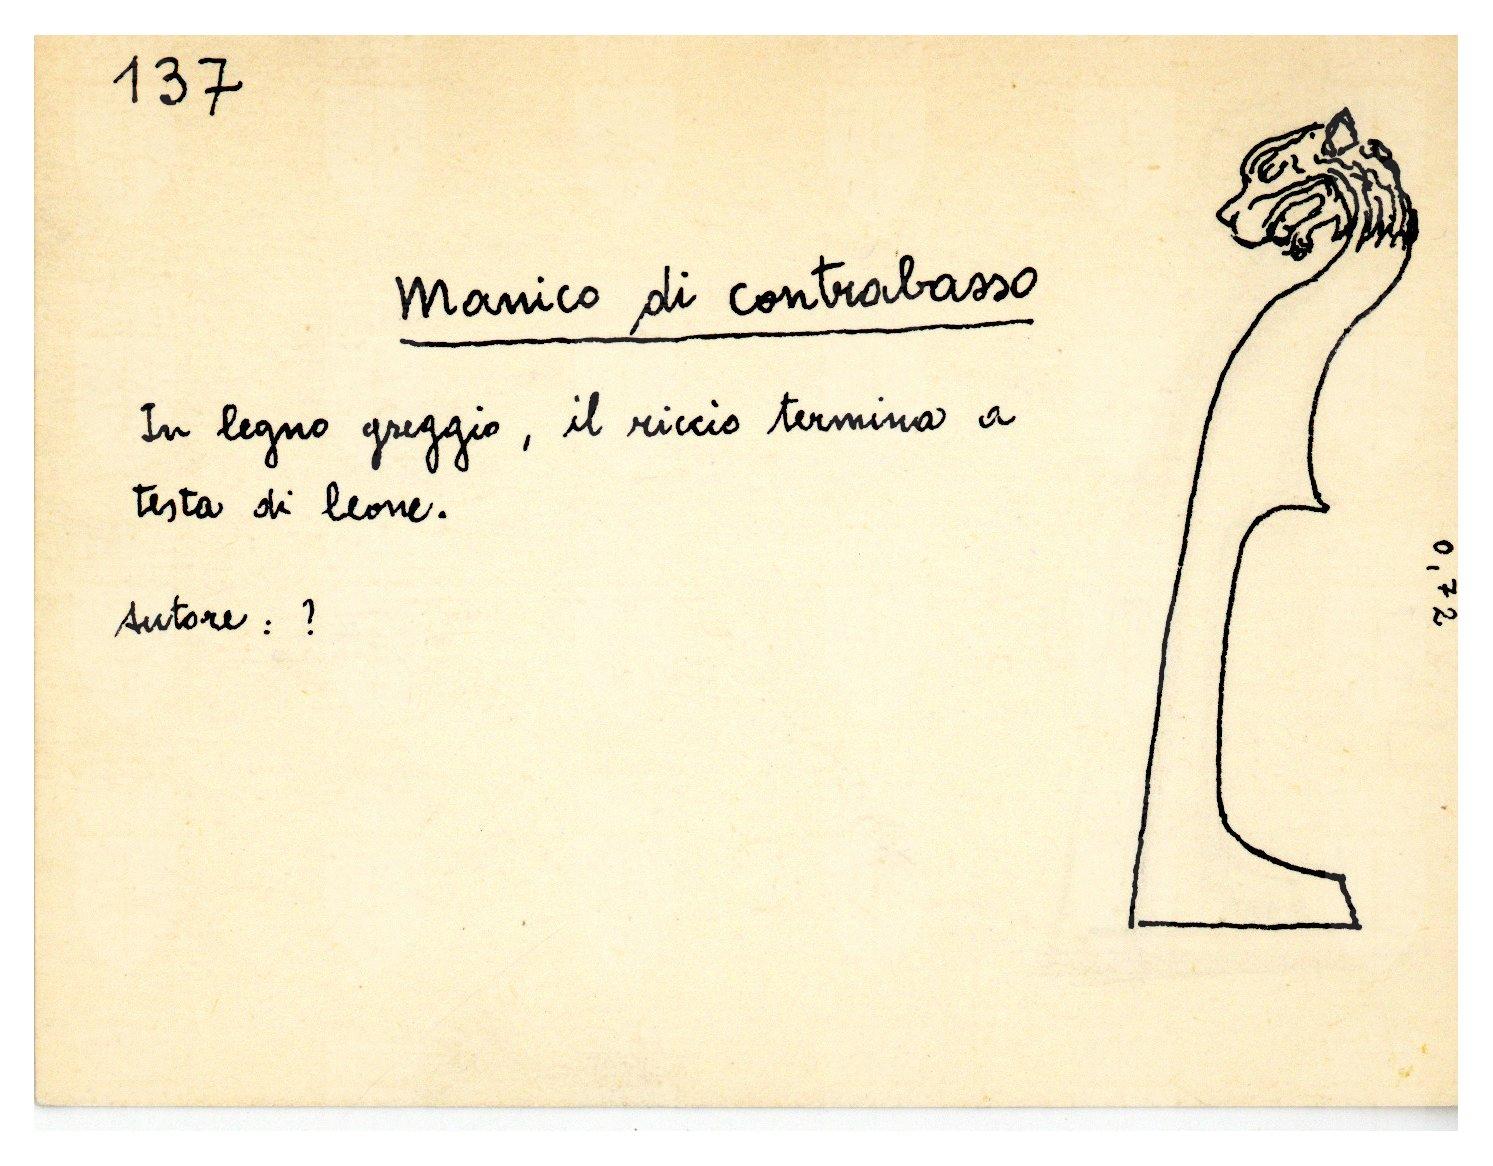 137
Manico di contrabasso
In legno greggio, il riccio termina a
testa di leone.
Autore : ?
0,72